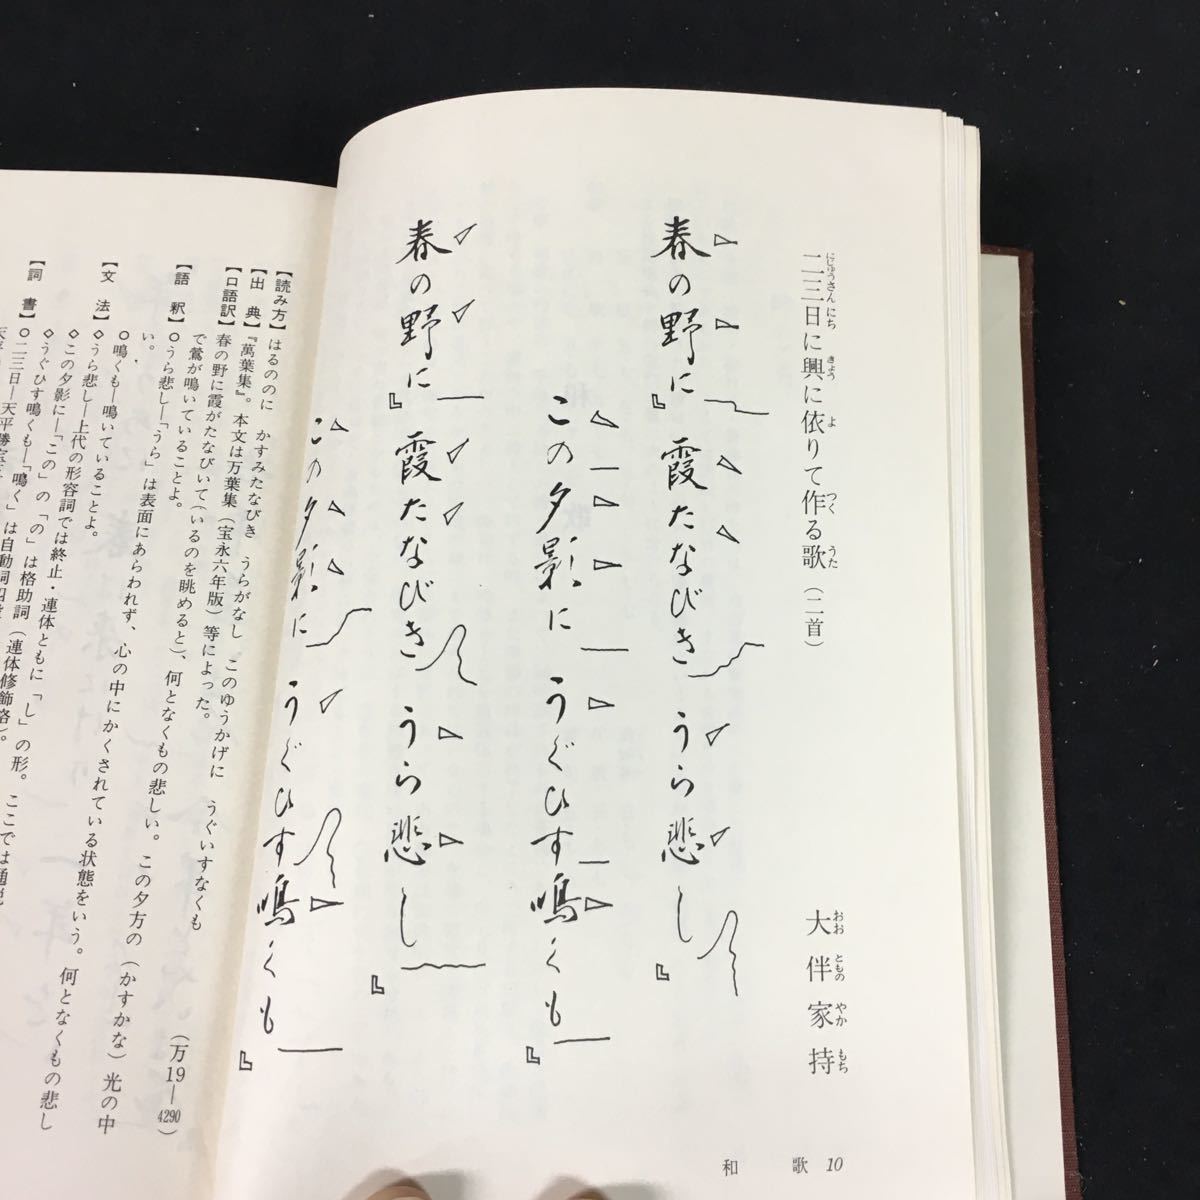 二三日に興に依りて作る歌(二首)
にじゅうさんにち きょう よ つく うた
大伴家持
おおとものやかもち
春の野に』霞たなびきうら悲し』
この夕影にうぐひす鳴くも』
春の野に』霞たなびきうら悲し』
この夕影にうぐひす鳴くも』
(万19―4290)
【読み方】はるののに かすみたなびき うらがなし このゆうかげに うぐいすなくも
【出典】『萬葉集』。本文は万葉集(宝永六年版)等によった。
【口語訳】春の野に霞がたなびいて(いるのを眺めると)、何となくもの悲しい。この夕方の(かすかな)光の中
で鶯が鳴いていることよ。
【語釈】○うら悲し―「うら」は表面にあらわれず、心の中にかくされている状態をいう。何となくもの悲し
い。
○鳴くも―鳴いていることよ。
【文法】◇うら悲し―上代の形容詞では終止・連体ともに「し」の形。ここでは通説
◇この夕影に―「この」の「の」は格助詞(連体修飾格)。
◇うぐひす鳴くも―「鳴く」は自動詞四
【詞書】○二三日―天平勝宝五
和歌 10